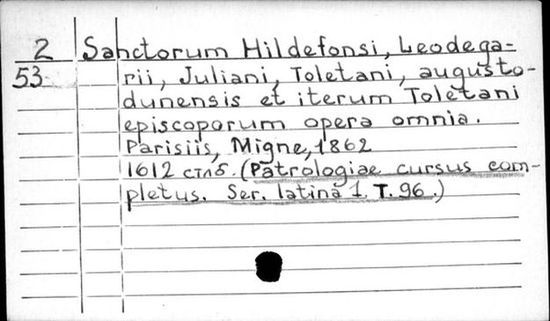 2 Sanctorum Hildefonsi, Leodega=
53 rii, Juliani, Toletani, augusto-
dunensis et iterum Toletani
episcoporum opera omnia.
Parisiis, Migne, 1862
1612 стлб. (Patrologiae cursus com-
pletus. Ser. latina 1. T. 96.)